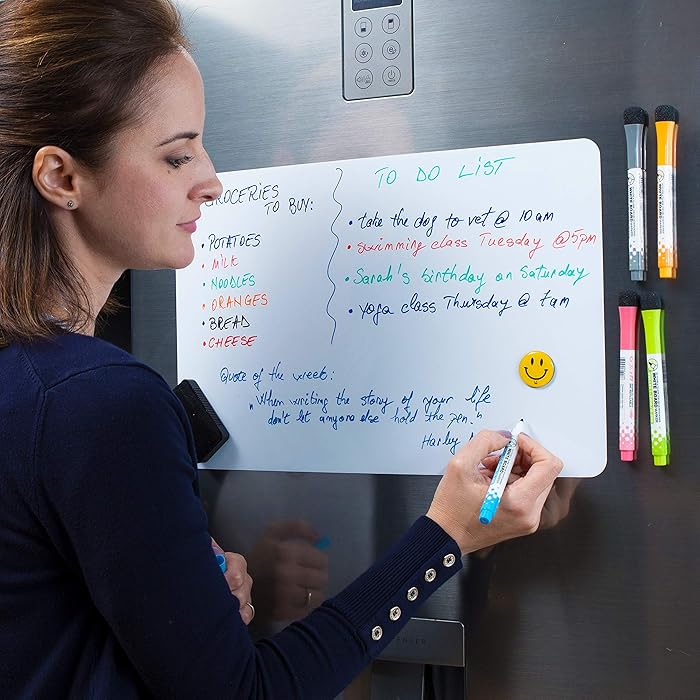 GROCERIES
TO BUY:
• POTATOES
• MILK
• NOODLES
• ORANGES
• BREAD
• CHEESE
TO DO LIST
• take the dog to vet @ 10am
• swimming class Tuesday @5pm
• Sarah's birthday on Saturday
• yoga class Thursday @ 7am
Quote of the week:
"When writing the story of your life
don't let anyone else hold the pen."
Harley
WHITE BOARD
WHITE BOARD
WHITE BOARD